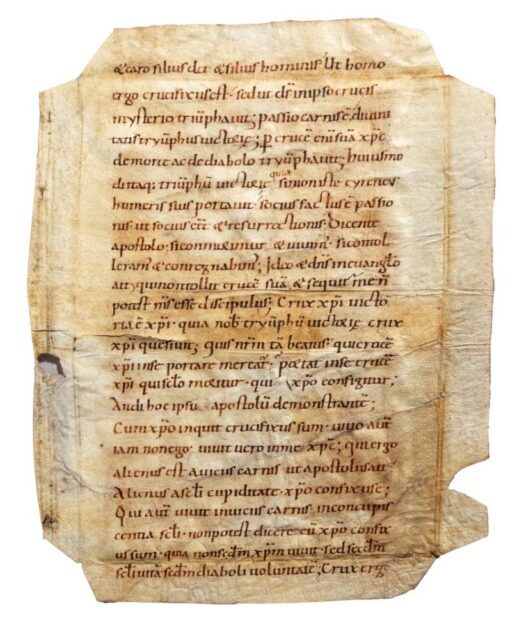 &caro filius dei &filius hominis. Ut homo
ergo crucifixus est. sed ut ds̄ inipso crucis
mysterio triūphauit; passio carnis ē, diuini
tatis tryūphus uictorię; p̄ crucē eni suā xp̄c
demorte ac dediabolo tryūphauit; huiusmo
di itaq; triūphū uictorię quia simon iste cyreneus
humeris suis portauit. socius factus ē passio
nis ut socius eēt & resurrectionis; Dicente
apostolo. si conmorimur & uiuim'. si contol
leram' & conregnabim'; Ideo & dn̄s ineuanglo
ait; qui non tollit crucē suā & sequit me n̄
potest m̄s esse discipulus; Crux xp̄i uicto
ria ē xp̄i. quia nob̄ tryūphū uictorię crux
xp̄i quesiuit; quis nr̄m tā beatus qui crucē
xp̄i inse portare mereat. Portat inse crucē
xp̄i qui sc̄lo moritur. qui xp̄o configitur;
Audi hoc ipsū apostolū demonstrantē;
Cum xp̄o inquit crucifixus sum. uiuo aut̄
iam non ego. uiuit uero inme xp̄c; qui ergo
alienus est auicus carnis ut apostolus ait
Alienus asc̄li cupiditate. xp̄o confixus ē;
Qui aut̄ uiuit inuiciis carnis. inconcupis
centia sc̄li. non potest dicere cū xp̄o confix
us sum. quia non sc̄dm xp̄m uiuit. sed sc̄dm
sc̄li uitā sc̄dm diaboli voluntatē; Crux ergo